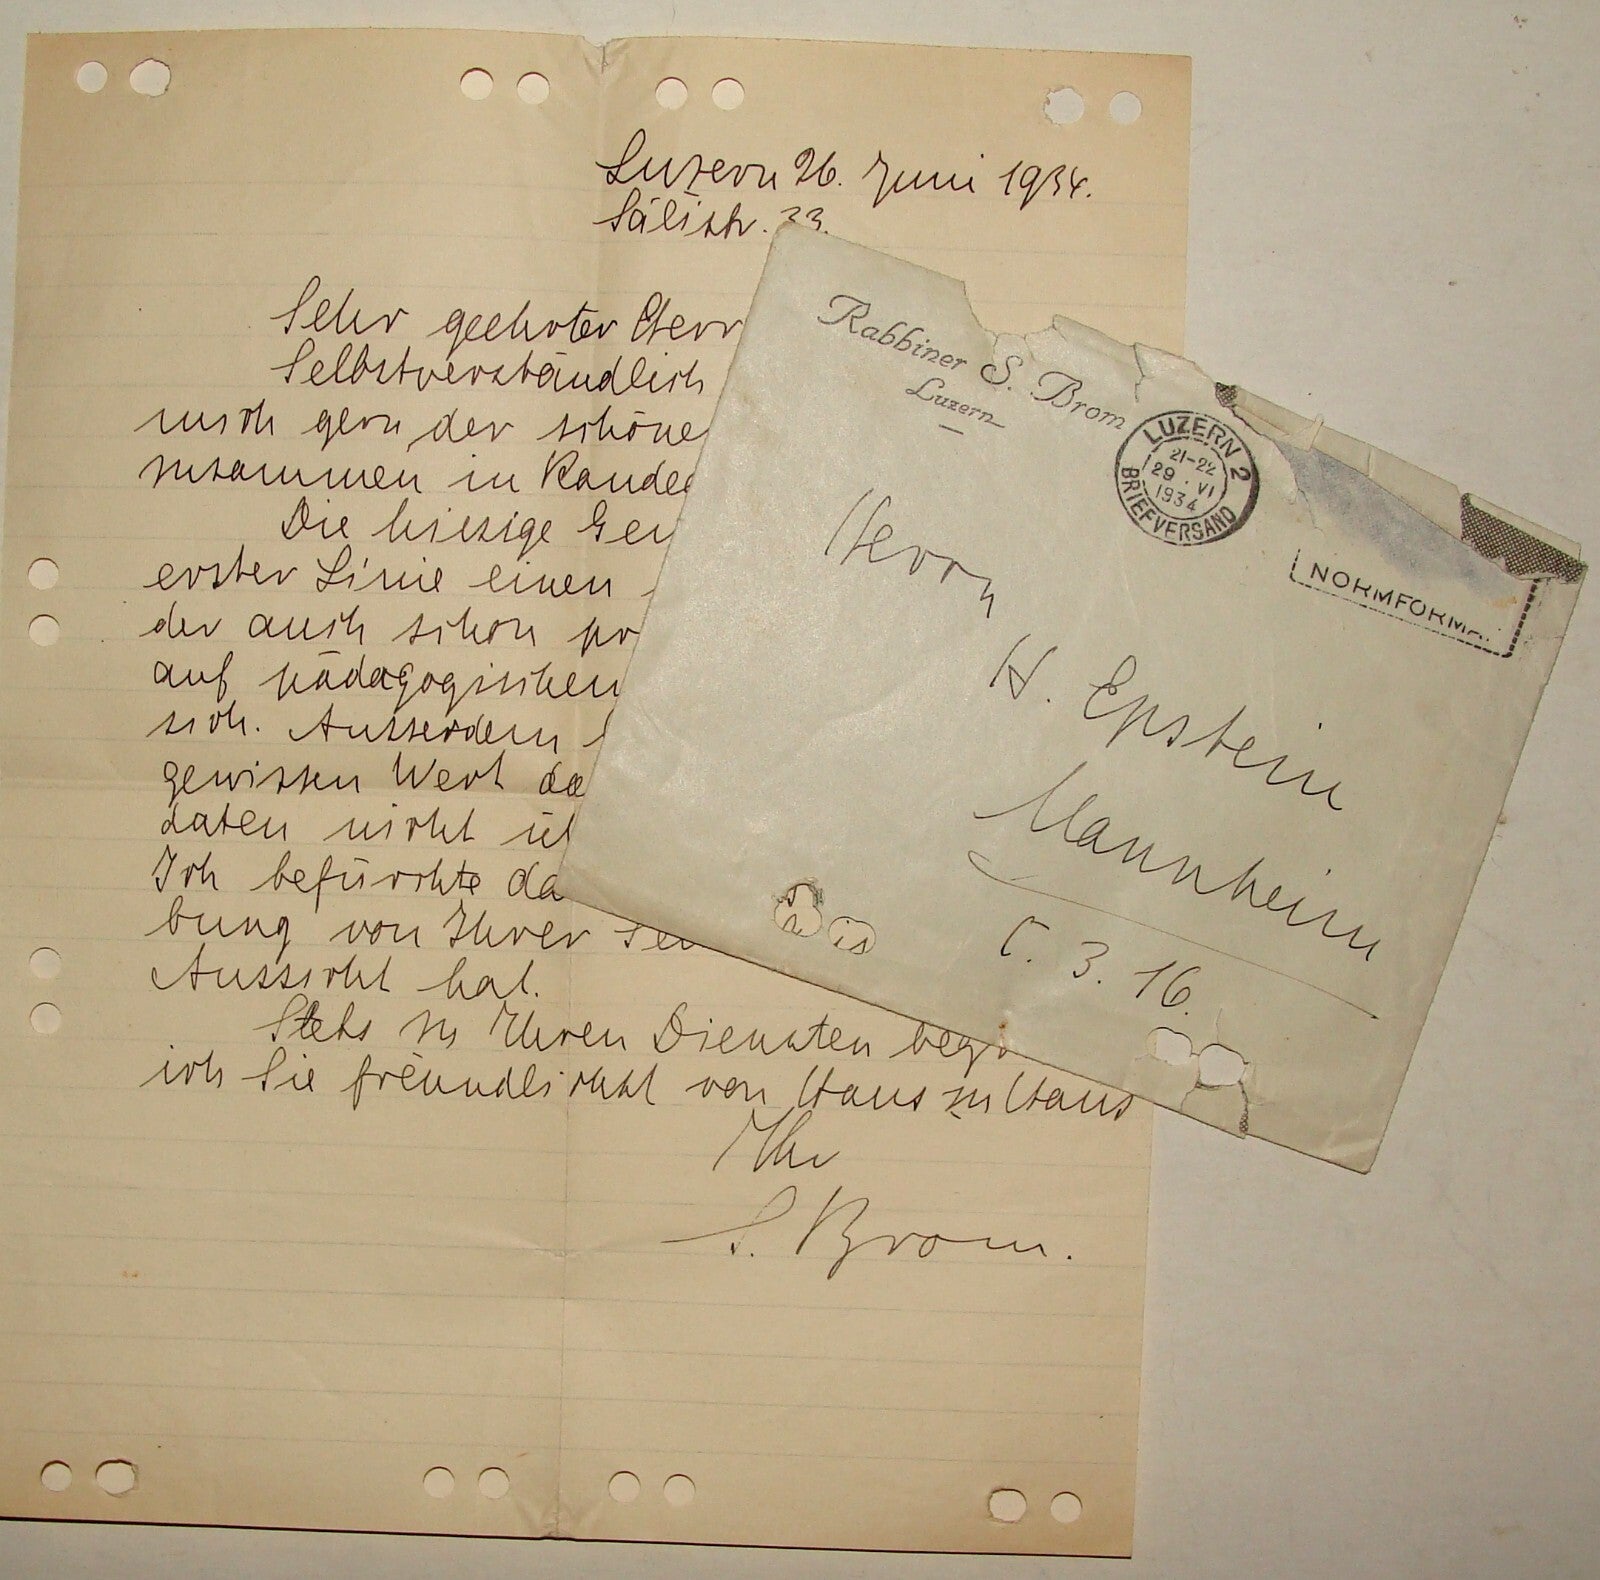 Luzern 26. Juni 1934.
Sälistr. 33.
Sehr geehrter Herr
Selbstverständlich
mich gern der schöne
zusammen in Kande
Die hiesige Gem
erster Linie einen
der auch schon pr
auf pädagogischen
sich. Ausserdem
gewissen Wert da
daten nicht üb
Ich befürchte da
bung von Ihrer Sei
Aussicht hat.
Stets zu Ihren Diensten begr
ich Sie freundlichst von Haus zu Haus
Ihr
S. Brom.
Rabbiner S. Brom
Luzern
LUZERN 2
21-22
29. VI
1934
BRIEFVERSAND
NORMFORMA
Herrn
H. Epstein
Mannheim
C. 3. 16.